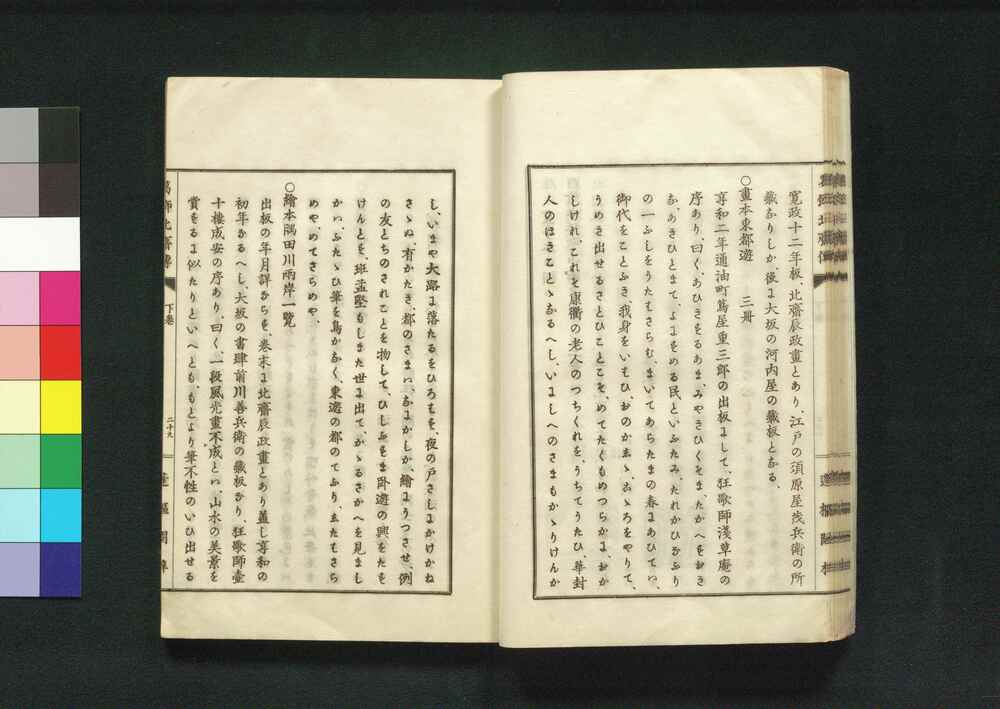 寛政十二年板、北齋辰政畫とあり、江戸の須原屋茂兵衛の所
藏なりしか、後に大坂の河内屋の藏板となる、
○畫本東都遊　三冊
享和二年通油町蔦屋重三郎の出板にして、狂歌師淺草庵の
序あり、曰く、あひきをるあま、みやきひくそま、たかへをおき
な、あきひとまて、よよをめる民といふたみ、たれかひなふり
の一ふしをうたはさらむ、まいてあらたまの春にあひては、
御代をことふき、我身をいはひ、おのか志ゝ、志ゝろをやりて、
うめき出せるさとひことこそ、めてたくもめつらかに、おか
しけれ、これを康衢の老人のつちくれを、うちてうたひ、華封
人のほきことゝなるへし、いにしへのさまもかゝりけんか
し、いまや大路に落たるをひろはを、夜の戸さしにかけかね
さゝぬ、有かたき、都のさまは、なにかしか繪にうつさせ、例
の友とちのされことを物して、ひしふをま臥遊の興をたを
けんとを、班孟堅もしまた世に出て、かゝるさかへを見まし
かは、ふたゝひ筆を鳥かなく、東遊の都のてふり、志たはさら
めや、めてさらめや、
○繪本隅田川兩岸一覽
出板の年月詳ならを、卷末に北齋辰政畫とあり、蓋し享和の
初年なるへし、大坂の書肆前川善兵衛の藏板なり、狂歌師壷
十樓成安の序あり、曰く、一段風光畫不成とは、山水の美景を
賞をるに似たりといへとも、もとより筆不性のいひ出せる
下卷
二十九